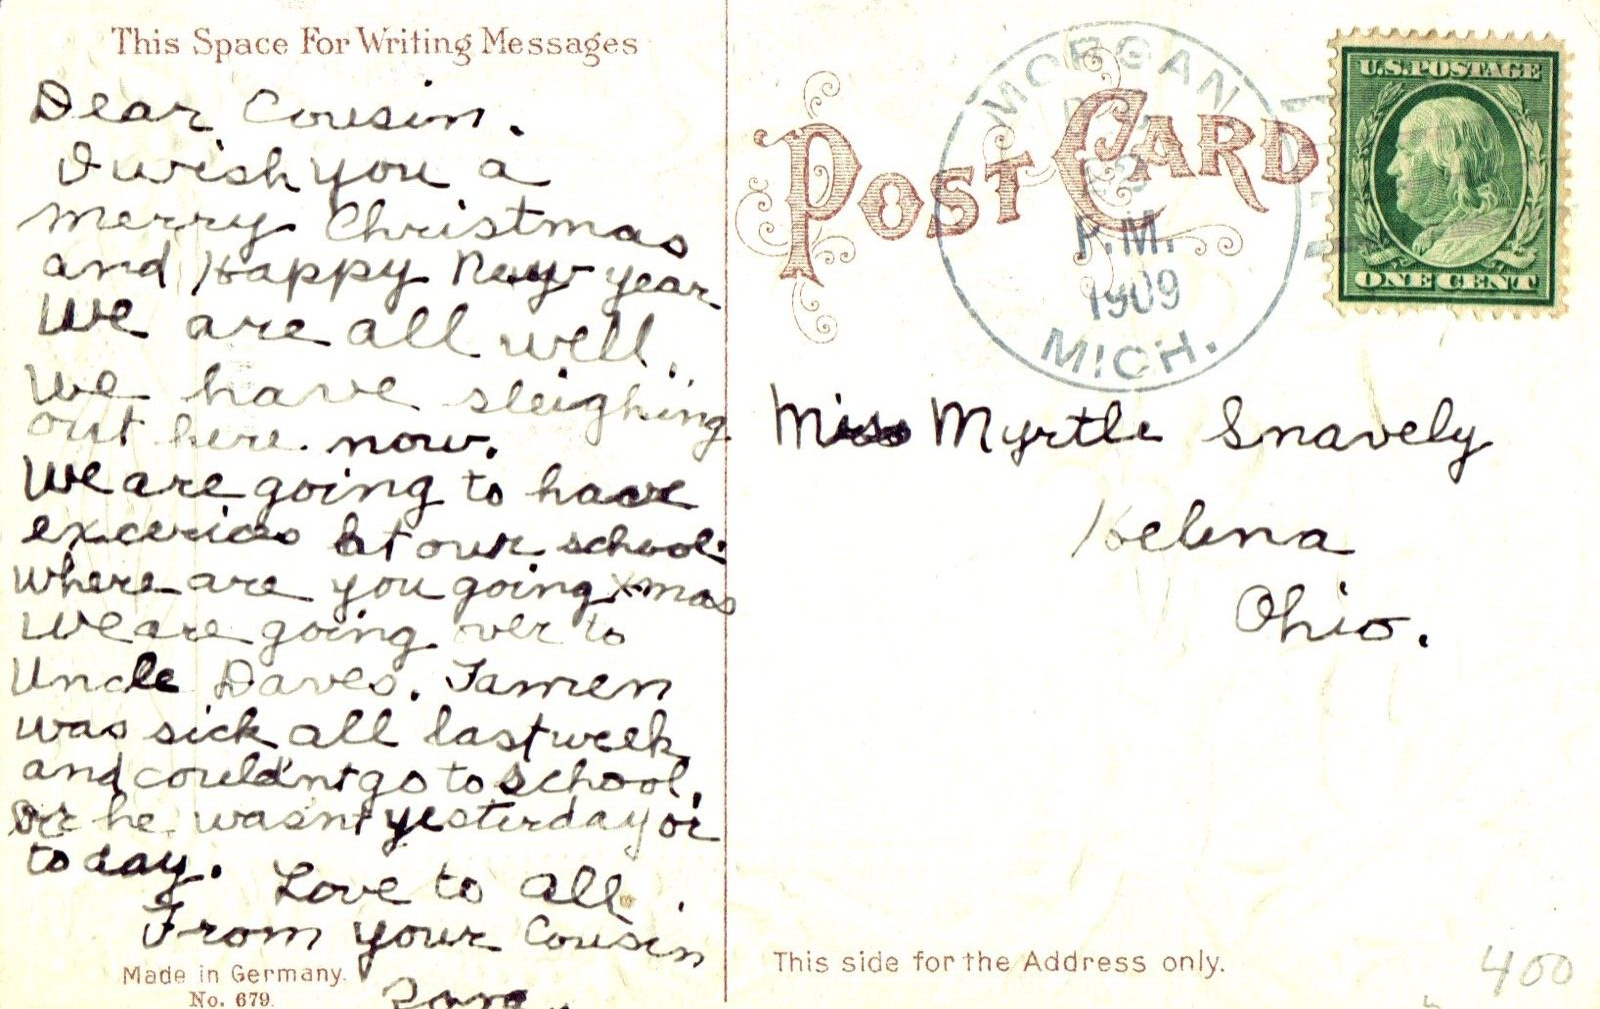 This Space For Writing Messages
Dear Cousin.
I wish you a
merry Christmas
and Happy New year
We are all well.
We have sleighing
out here now.
We are going to have
at our school.
where are you going xmas
We are going over to
Uncle Daves.
was sick all last week
and could'nt go to school.
or he wasn't yesterday or
today.
Love to all.
From your Cousin
Made in Germany.
No. 679.
POST CARD
MORGAN
P.M.
1909
MICH.
U.S. POSTAGE
ONE CENT
Miss Myrtle Snavely
Helena
Ohio.
This side for the Address only.
400